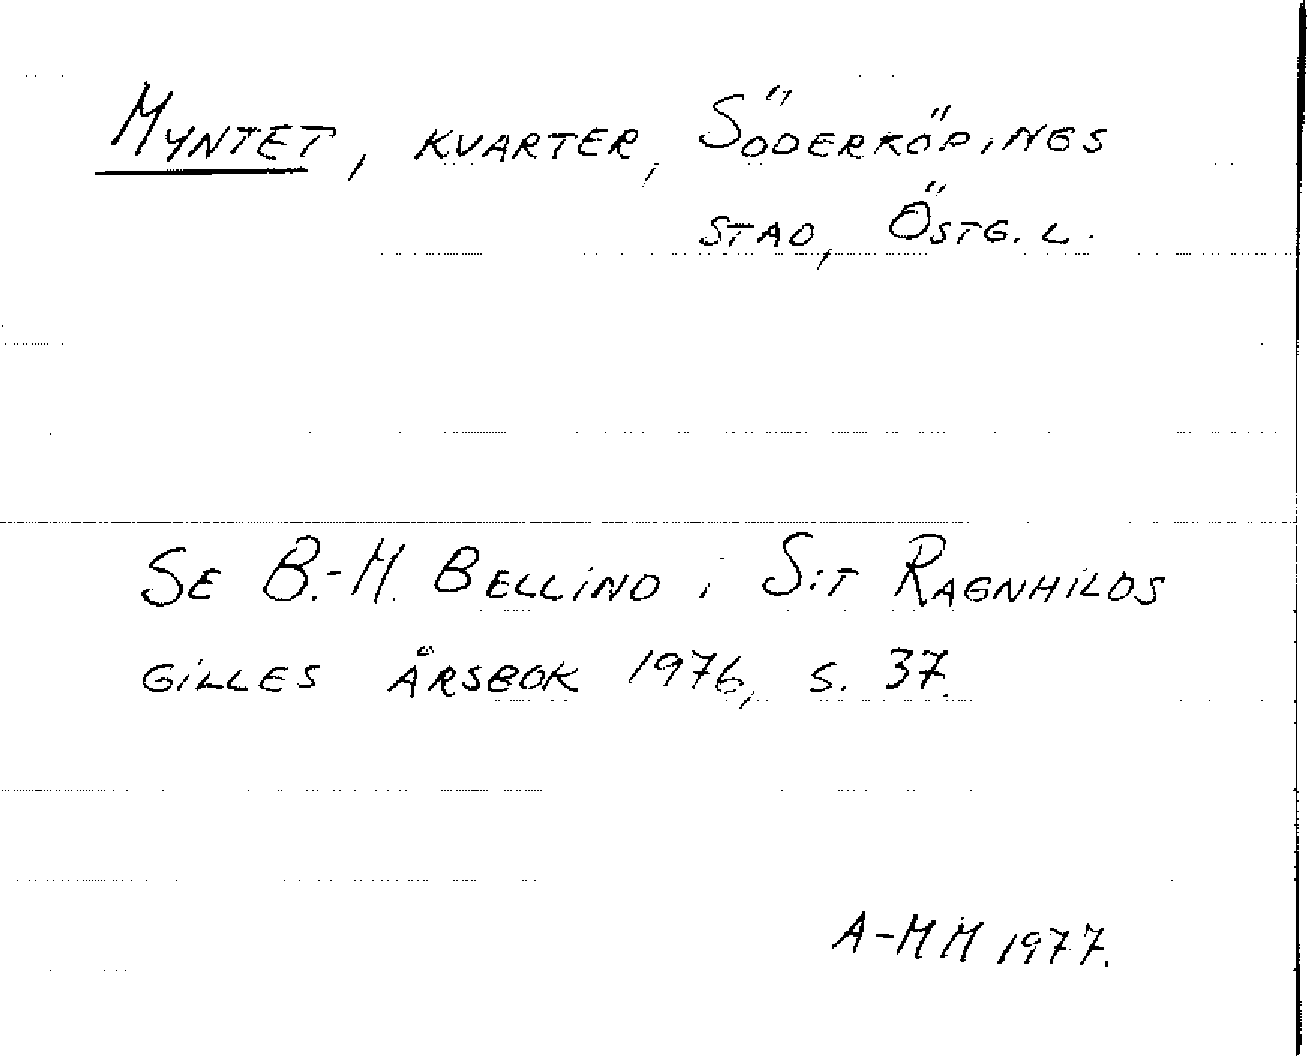 Myntet, kvarter, Söderköpings
stad, Östg. l.
Se B.-M. Bellind i S:t Ragnhilds
gilles årsbok 1976, s. 37.
A-MM 1977.